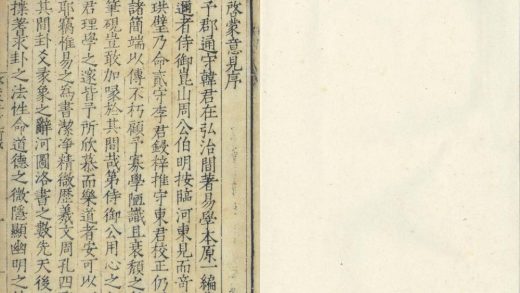 啓蒙意見序
予郡通守韓君在弘治間著易學本原一編
邇者侍御崑山周公伯明按臨河東見而竒
珙璧乃命貳守李君録梓推守東君校正仍
諸簡端以傳不朽顧予寡學陋識且衰頽之
筆硯豈敢加喙於其間哉第侍御公用心之
君理學之邃皆予所欣慕而樂道者安可以
耶竊惟易之為書潔淨精微歷羲文周孔四
其間卦爻彖象之辭河圖洛書之數先天後
揲蓍求卦之法性命道德之微隱顯幽明之